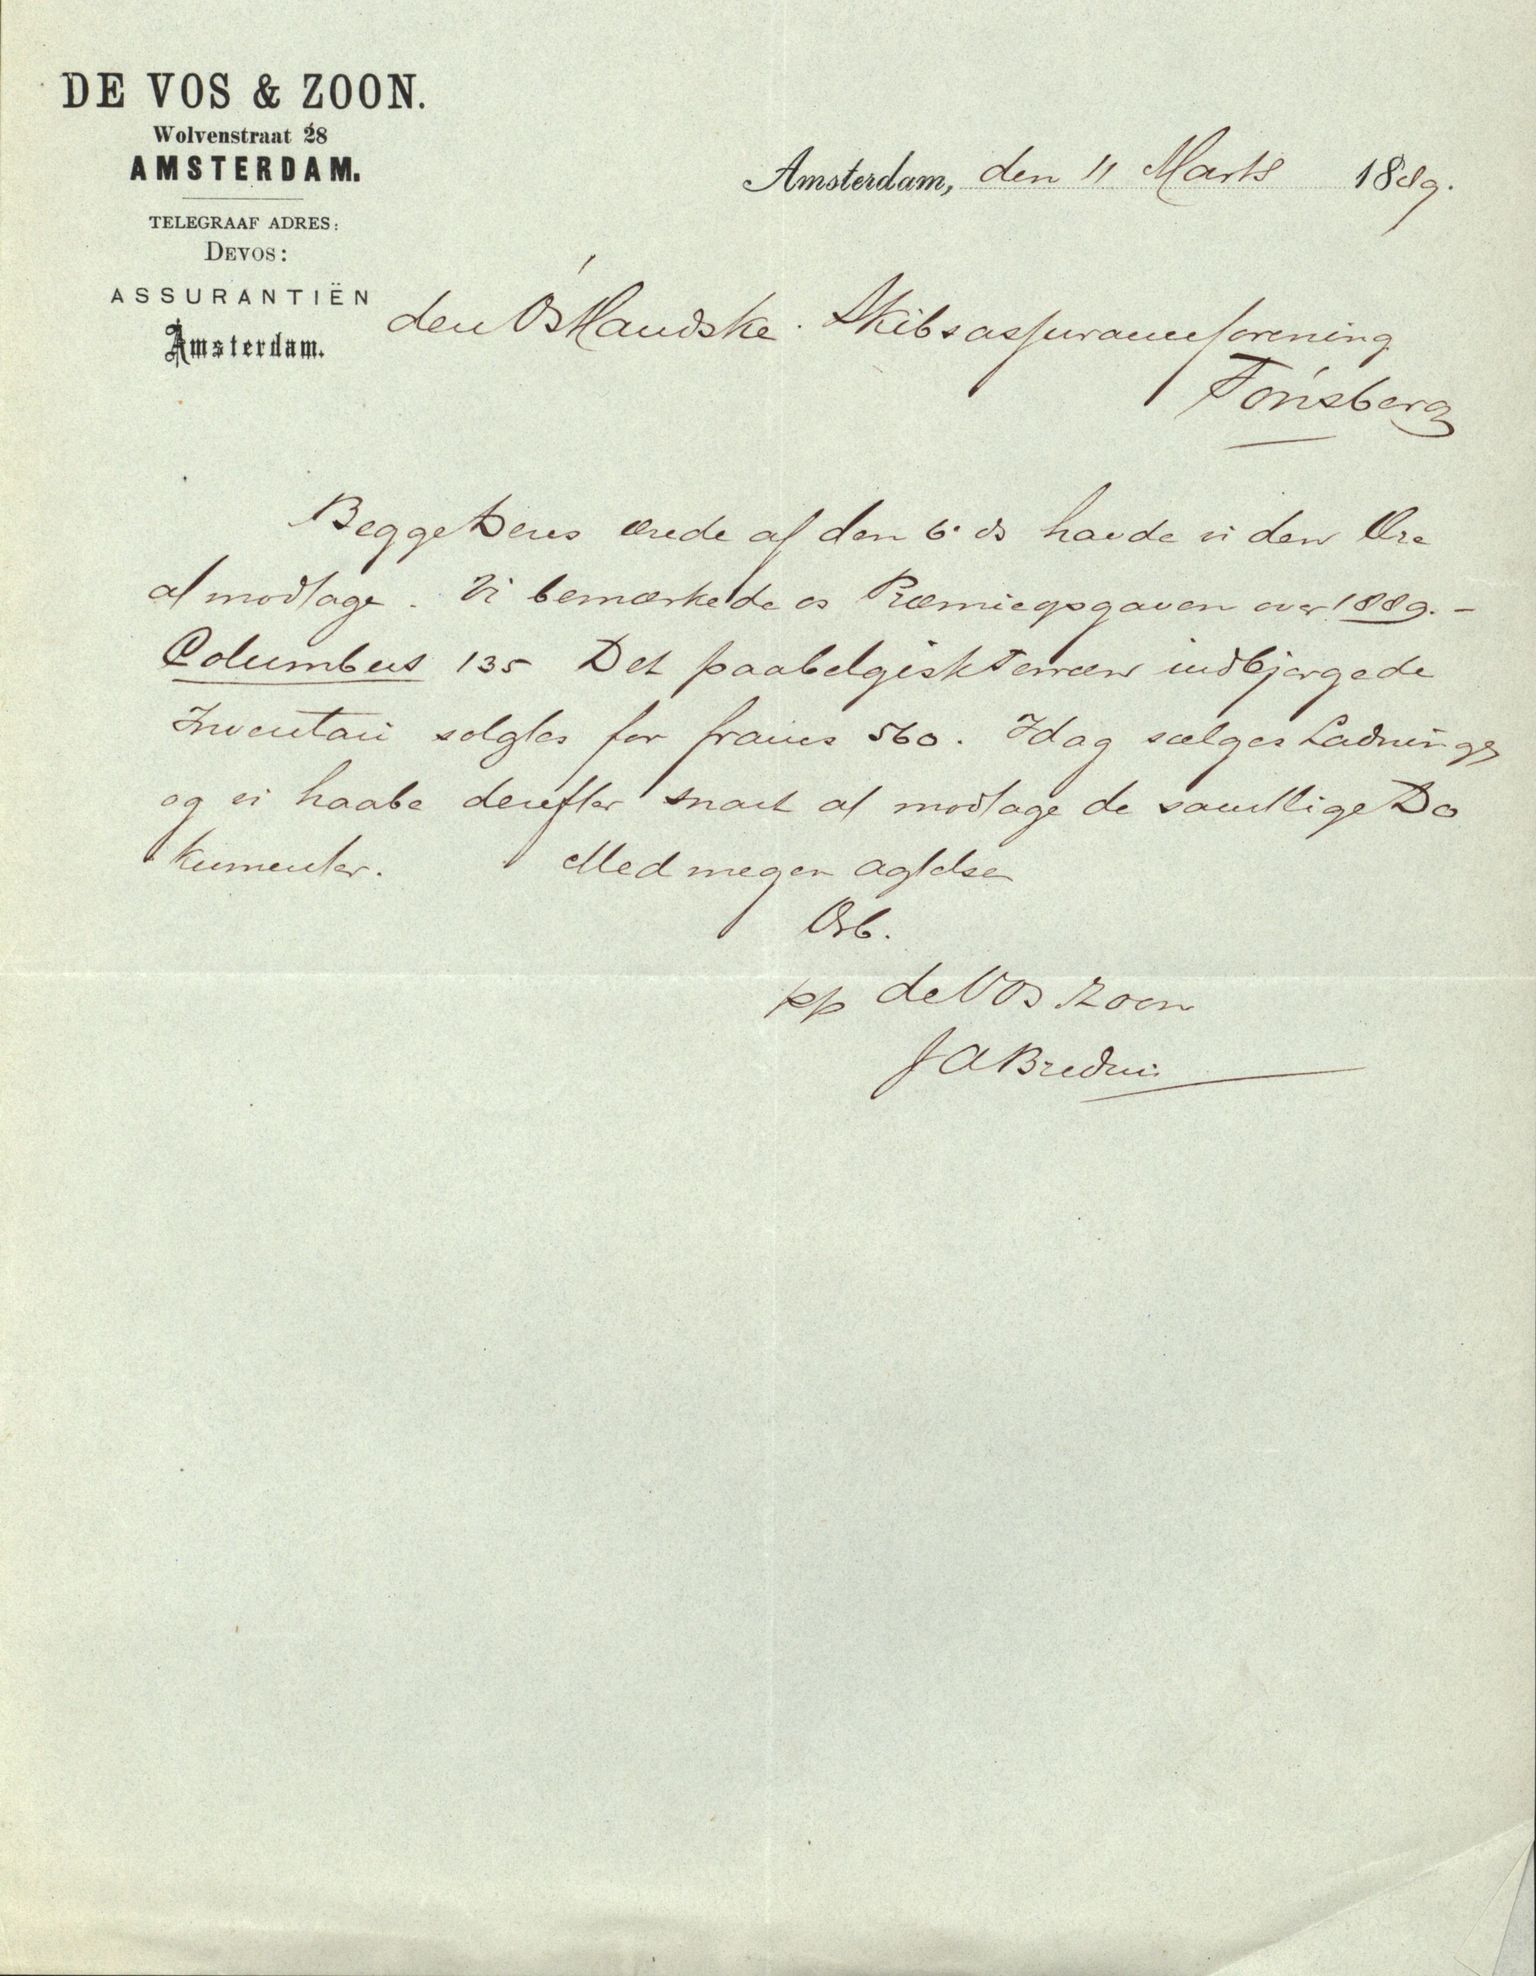 DE VOS & ZOON.
Wolvenstraat 28
AMSTERDAM.
TELEGRAAF ADRES:
DEVOS:
ASSURANTIËN
Amsterdam.
Amsterdam, den 11 Marts 1889.
den Østlandske Skibsassuranceforening
Tønsberg
Begge Deres ærede af den 6' ds havde vi den Ære
at modtage. Vi bemærkede os Præmieopgaven over 1889. -
Columbus 135 Det paa belgisk Terræn indbjergede
Inventari solgtes for francs 560. Idag sælges Ladningen
og vi haabe derefter snart at modtage de samtlige Do
kumenter. Med megen Agtelse
Ærb.
pp de Vos & Zoon
J A Bredius